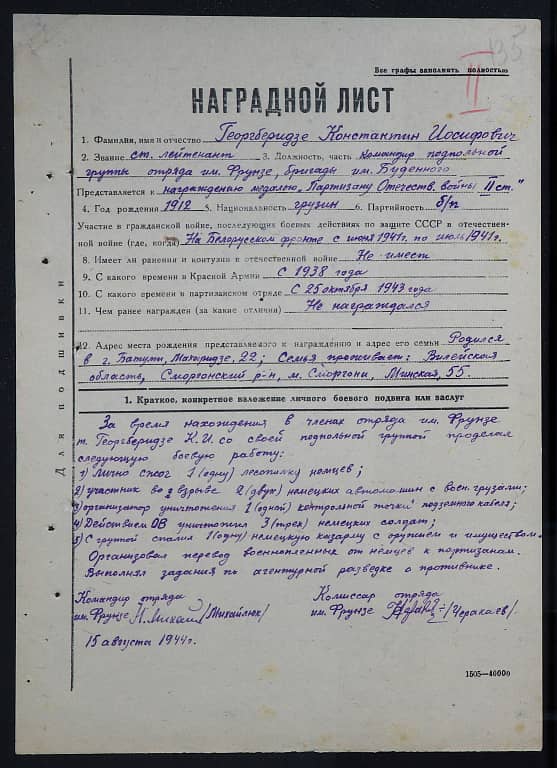 135
II
Все графы заполнять полностью
НАГРАДНОЙ ЛИСТ
1. Фамилия, имя и отчество Георгберидзе Константин Иосифович
2. Звание ст. лейтенант 3. Должность, часть командир подпольной
группы отряда им. Фрунзе, бригады им. Буденного
Представляется к награждению медалью „Партизану Отечеств. войны II ст."
4. Год рождения 1912 5. Национальность грузин 6. Партийность б/п
Участие в гражданской войне, последующих боевых действиях по защите СССР в отечествен-
ной войне (где, когда) На Белорусском фронте с июня 1941г. по июль 1941г.
8. Имеет ли ранения и контузии в отечественной войне Не имеет
9. С какого времени в Красной Армии С 1938 года
10. С какого времени в партизанском отряде С 25 октября 1943 года
11. Чем ранее награжден (за какие отличия) Не награждался
12. Адрес места рождения представляемого к награждению и адрес его семьи Родился
в г. Батуми, Махаридзе, 22; Семья проживает: Вилейская
область, Сморгонский р-н, м. Сморгонь, Минская, 55.
Для подшивки
1. Краткое, конкретное изложение личного боевого подвига или заслуг
За время нахождения в членах отряда им. Фрунзе
т. Георгберидзе К.И. со своей подпольной группой проделал
следующую боевую работу:
1) Лично сжег 1 (одну) лесопилку немцев;
2) участник во взрыве 2 (двух) немецких автомашин с воен. грузами;
3) организатор уничтожения 1 (одной) контрольной точки подземного кабеля;
4) Действием ОВ уничтожил 3 (трех) немецких солдат;
5) С группой спалил 1 (одну) немецкую казарму с оружием и имуществом.
Организовал перевод военнопленных от немцев к партизанам.
Выполнял задания по агентурной разведке о противнике.
Командир отряда Комиссар отряда
им. Фрунзе /Михайлюк/ им. Фрунзе
15 августа 1944г.
1505—40000